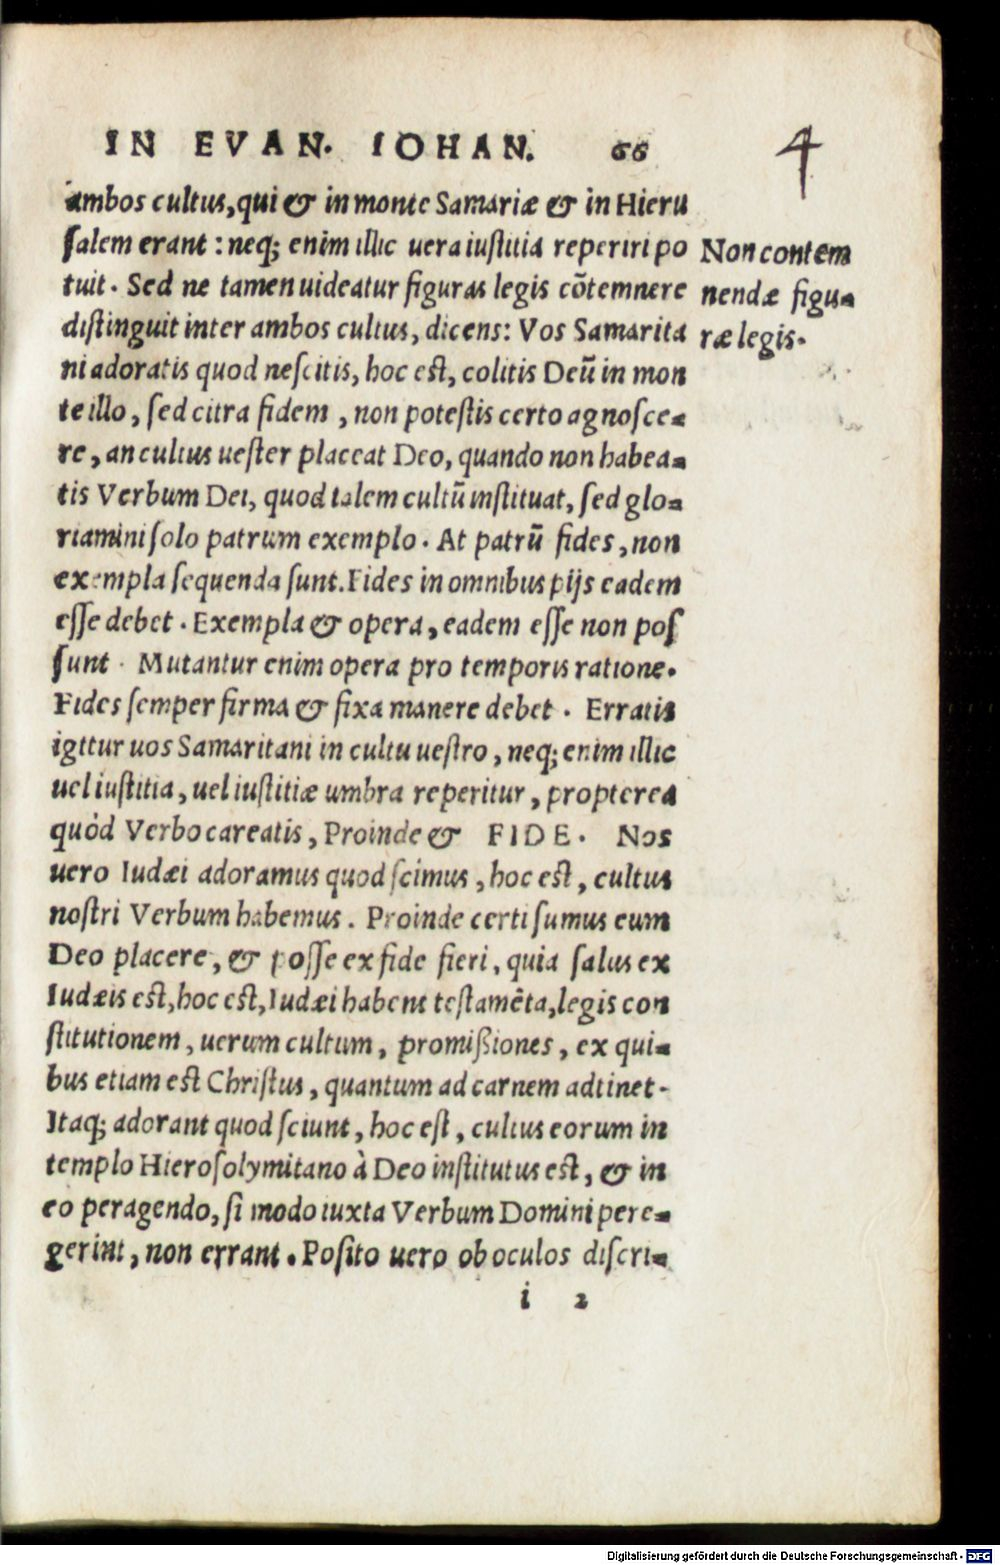 IN EVAN. IOHAN. 66
4
ambos cultus, qui & in monte Samariæ & in Hieru
salem erant: neq; enim illic uera iustitia reperiri po
tuit. Sed ne tamen uideatur figuras legis cōtemnere
distinguit inter ambos cultus, dicens: Vos Samarita
ni adoratis quod nescitis, hoc est, colitis Deū in mon
te illo, sed citra fidem, non potestis certo agnosce-
re, an cultus uester placeat Deo, quando non habea-
tis Verbum Dei, quod talem cultū instituat, sed glo-
riamini solo patrum exemplo. At patrū fides, non
exempla sequenda sunt. Fides in omnibus pijs eadem
esse debet. Exempla & opera, eadem esse non pos
sunt. Mutantur enim opera pro temporis ratione.
Fides semper firma & fixa manere debet. Erratis
igttur uos Samaritani in cultu uestro, neq; enim illic
uel iustitia, uel iustitiæ umbra reperitur, propterea
quòd Verbo careatis, Proinde & FIDE. Nos
uero Iudæi adoramus quod scimus, hoc est, cultus
nostri Verbum habemus. Proinde certi sumus eum
Deo placere, & posse ex fide fieri, quia salus ex
Iudæis est, hoc est, Iudæi habent testamēta, legis con
stitutionem, uerum cultum, promißiones, ex qui-
bus etiam est Christus, quantum ad carnem adtinet.
Itaq; adorant quod sciunt, hoc est, cultus eorum in
templo Hierosolymitano à Deo institutus est, & in
eo peragendo, si modo iuxta Verbum Domini pere-
gerint, non errant. Posito uero ob oculos discri-
i 2
Non contem
nendæ figu-
ræ legis.
Digitalisierung gefördert durch die Deutsche Forschungsgemeinschaft - DFG